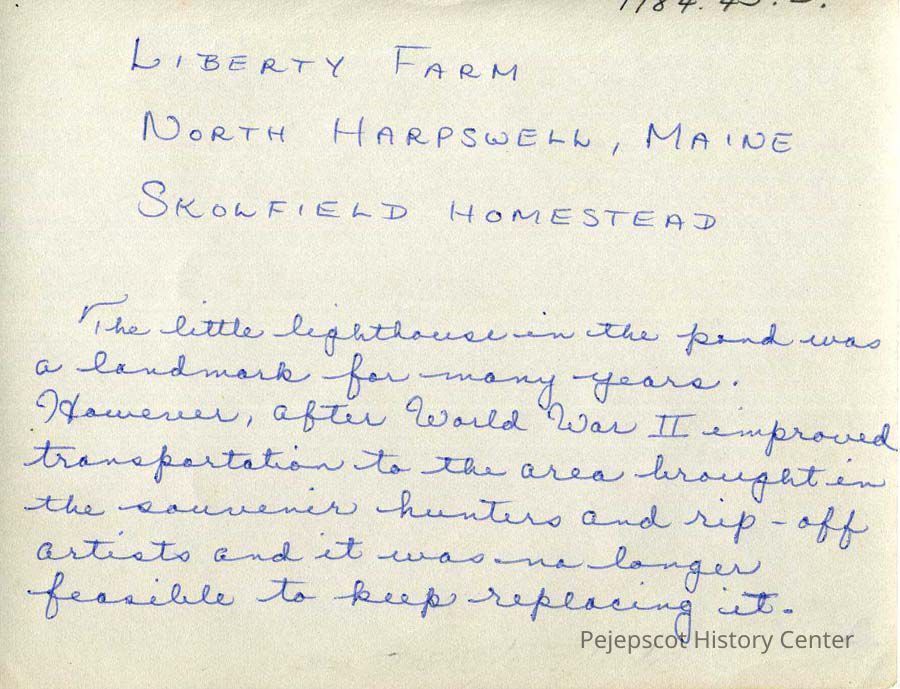 LIBERTY FARM
NORTH HARPSWELL, MAINE
SKOLFIELD HOMESTEAD
The little lighthouse in the pond was
a landmark for many years.
However, after World War II improved
transportation to the area brought in
the souvenir hunters and rip-off
artists and it was no longer
feasible to keep replacing it.
Pejepscot History Center